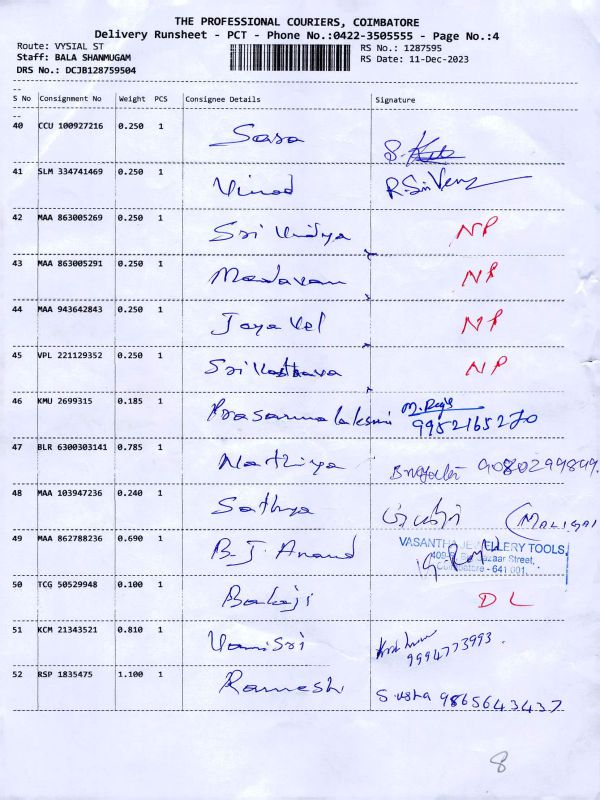 THE PROFESSIONAL COURIERS, COIMBATORE
Delivery Runsheet - PCT - Phone No.:0422-3505555 - Page No.:4
Route: VYSIAL ST
RS No.: 1287595
Staff: BALA SHANMUGAM
RS Date: 11-Dec-2023
DRS No.: DCJB128759504
S No Consignment No Weight PCS Consignee Details Signature
40 CCU 100927216 0.250 1 Sasa S.
41 SLM 334741469 0.250 1 Vinod R. Sri
42 MAA 863005269 0.250 1 Sri Vidya NP
43 MAA 863005291 0.250 1 Madavan NP
44 MAA 943642843 0.250 1 Jaya Vel NP
45 VPL 221129352 0.250 1 Sri NP
46 KMU 2699315 0.185 1 Prasanna lakshmi M. Raja
9952165270
47 BLR 6300303141 0.785 1 Nathiya 9080299899.
48 MAA 103947236 0.240 1 Sathya (MALIGAI
49 MAA 862788236 0.690 1 B. J. Anand
VASANTHA JEWELLERY TOOLS,
Bazaar Street,
Coimbatore - 641 001.
50 TCG 50529948 0.100 1 Balaji DL
51 KCM 21343521 0.810 1 Vamsi Sri
9994773993.
52 RSP 1835475 1.100 1 Ramesh S. usha 9865643437
8